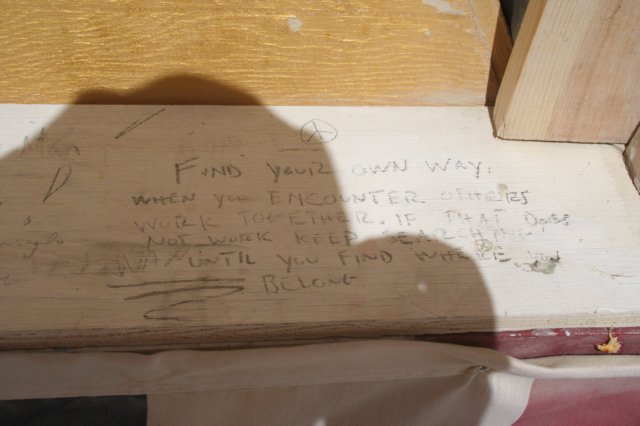 Man
FIND YOUR OWN WAY,
WHEN YOU ENCOUNTER OTHERS
WORK TOGETHER. IF THAT DOES
NOT WORK KEEP SEARCHING,
UNTIL YOU FIND WHERE YOU
BELONG